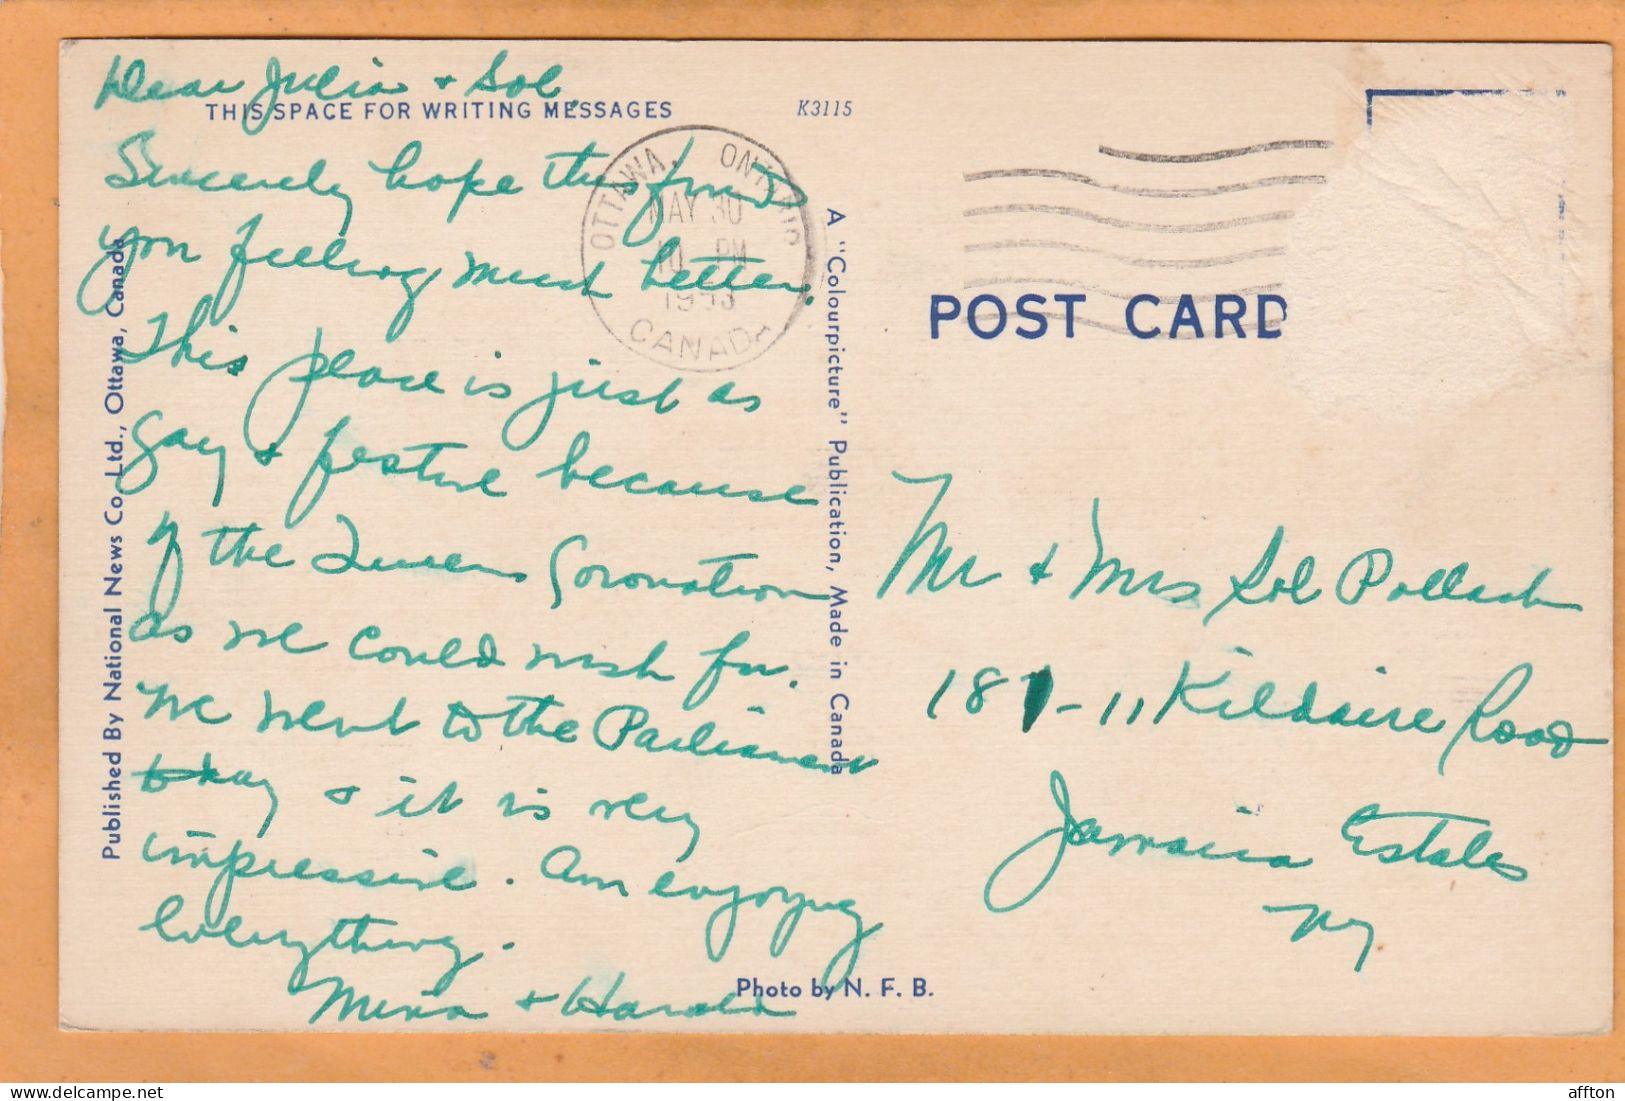 Dear Julia + Sol,
THIS SPACE FOR WRITING MESSAGES
K3115
Sincerely hope this finds
you feeling much better.
This place is just as
gay & festive because
of the Queens Coronation
as we could wish for.
We went to the Parliament
today & it is very
impressive. Am enjoying
everything.
+ Harold
OTTAWA. ONTARIO
MAY 30
10 PM
1953
CANADA
Published By National News Co. Ltd., Ottawa, Canada
A "Colourpicture" Publication, Made in Canada
POST CARD
Mr + Mrs Sol Pollack
Kildaire Road
Jamaica Estates
NY
Photo by N. F. B.
affton